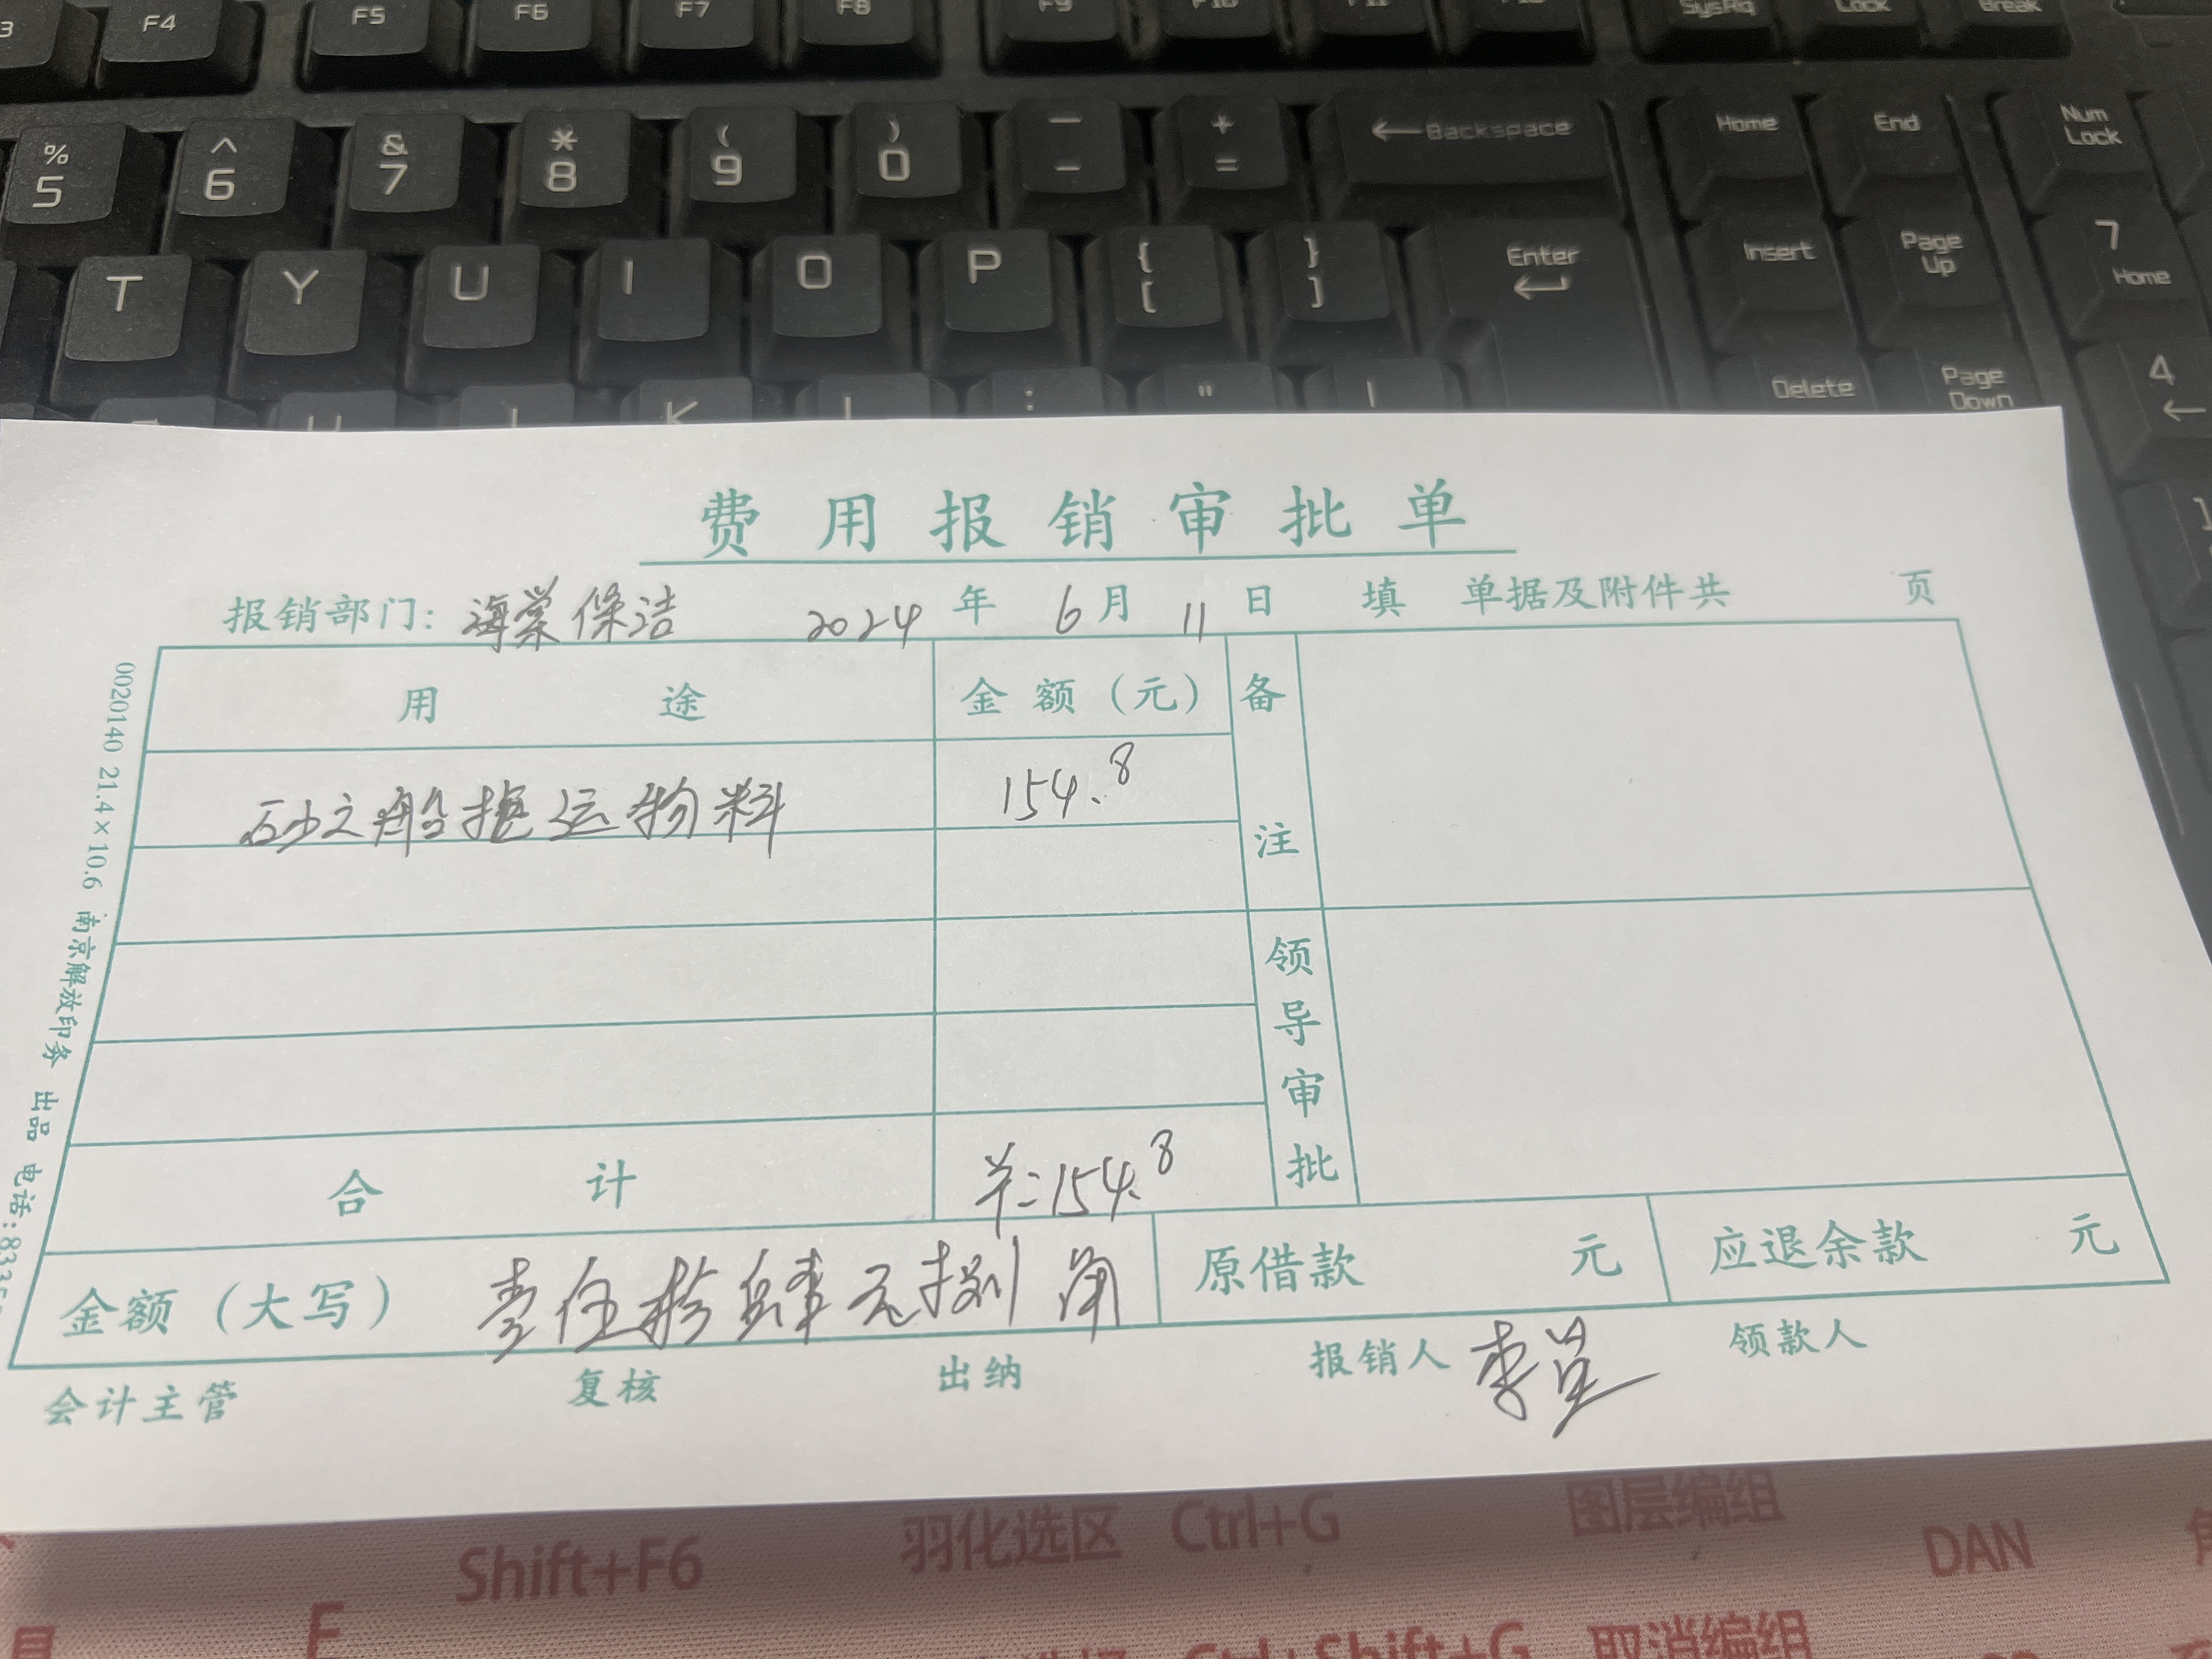 F4 F5 F6 F7 F8 F9
SysRq Lock Break
% 5 ^ 6 & 7 * 8 ( 9 ) 0 — - + = ←Backspace Home End Num Lock
T Y U I O P { [ } ] Enter Insert Page Up 7 Home
K : " Delete Page Down 4 ←
费用报销审批单
报销部门: 海棠保洁 2024 年 6 月 11 日 填 单据及附件共 页
用途 金额(元) 备注
砂之船搬运物料 154.8
领导审批
合计 ¥:154.8
金额(大写) 壹伍拾肆元捌角 原借款 元 应退余款 元
会计主管 复核 出纳 报销人 李 领款人
0020140 21.4×10.6 南京解放印务 出品 电话:833
Shift+F6 羽化选区 Ctrl+G 图层编组 DAN
F Ctrl+Shift+G 取消编组